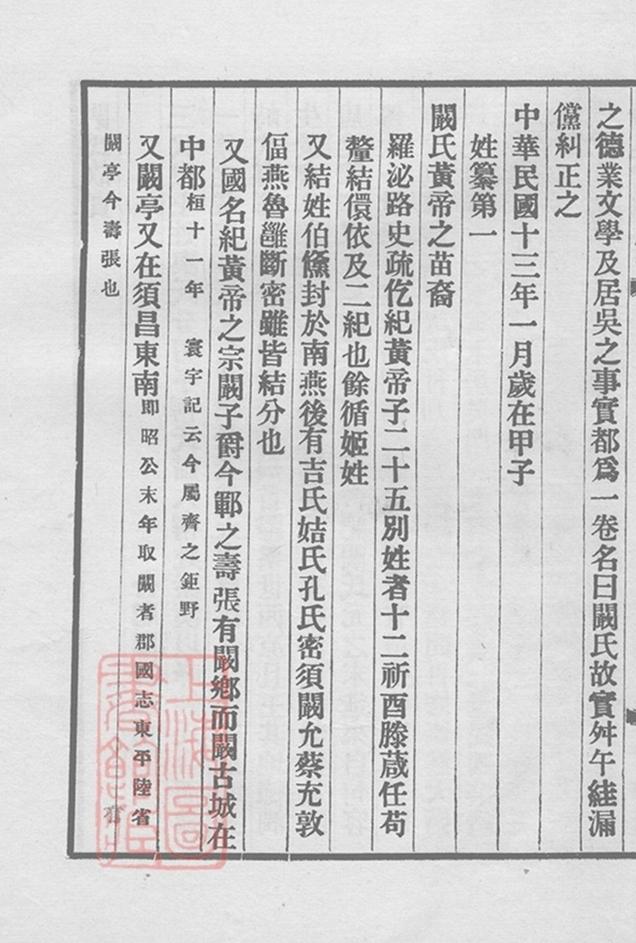 之德業文學及居吳之事實都爲一卷名曰闞氏故實舛午絓漏
儻糾正之
中華民國十三年一月歲在甲子
姓纂第一
闞氏黃帝之苗裔
羅泌路史疏仡紀黃帝子二十五別姓者十二祈酉滕葴任苟
釐結儇依及二紀也餘循姬姓
又結姓伯儵封於南燕後有吉氏姞氏孔氏密須闞允蔡充敦
偪燕魯雝斷密雖皆結分也
又國名紀黃帝之宗闞子爵今鄆之壽張有闞鄉而闞古城在
中都桓十一年 寰宇記云今屬齊之鉅野
又闞亭又在須昌東南即昭公末年取闞者郡國志東平陸省
闞亭今壽張也